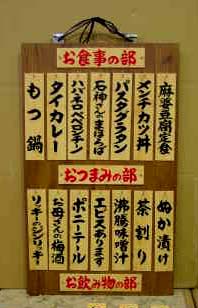 お食事の部
麻婆豆腐定食
メンチカツ丼
パスタグラタン
石神さんの
ハバネロペペロンチーノ
タイカレー
もつ鍋
おつまみの部
ぬか漬け
茶割り
沸騰味噌汁
エビスあります
ポニーテール
お母さんの梅酒
リッキーのジンリッキー
お飲み物の部